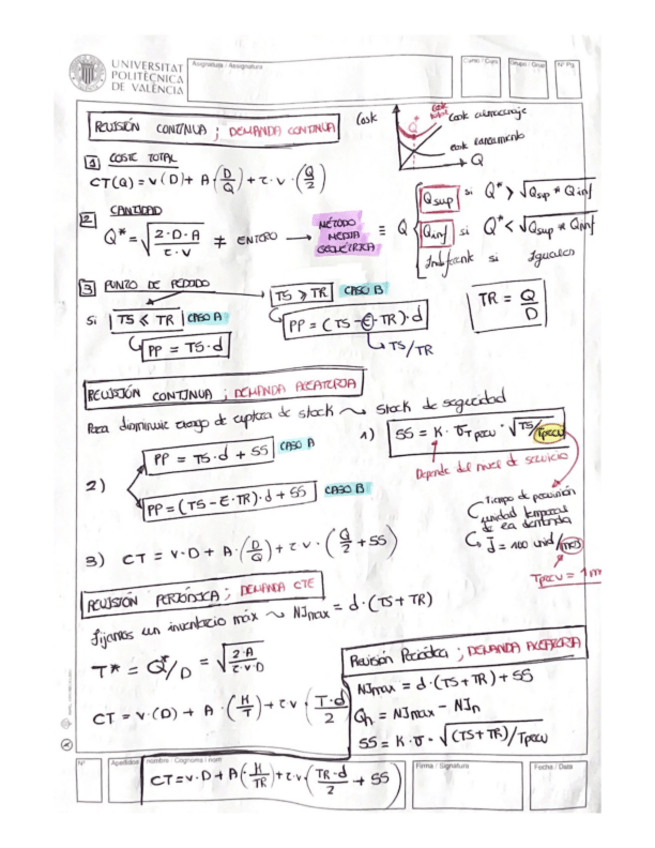 UNIVERSITAT
POLITÈCNICA
DE VALÈNCIA
Asignatura / Assignatura
Curso / Curs
Grupo / Grup
Nº Pg.
REVISIÓN CONTÍNUA ; DEMANDA CONTINUA
Cost
Cost total
Cost almacenaje
Q*
cost lanzamiento
Q
1 COSTE TOTAL
CT(Q) = v(D) + A·(D/Q) + τ·v·(Q/2)
2 CANTIDAD
Q* = √(2·D·A / τ·v) ≠ ENTERO → MÉTODO MEDIA GEOMÉTRICA ≡ Q
Qsup si Q* > √Qsup * Qinf
Qinf si Q* < √Qsup * Qinf
Indiferent si Iguales
3 PUNTO DE PEDIDO
Si TS ≤ TR CASO A
PP = TS·d
TS > TR CASO B
PP = (TS - E·TR)·d
TS/TR
TR = Q/D
REVISIÓN CONTINUA ; DEMANDA ALEATORIA
Para disminuir riesgo de ruptura de stock ~ Stock de seguridad
1) SS = K · σTprev · √TS/Tprev
Depende del nivel de servicio
2) PP = TS·d + SS CASO A
PP = (TS - E·TR)·d + SS CASO B
Tiempo de previsión
unidad temporal
de la demanda
d = 100 unid/mes
Tprev = 1 m
3) CT = v·D + A·(D/Q) + τ v·(Q/2 + SS)
REVISIÓN PERIÓDICA ; DEMANDA CTE
Fijamos un inventario máx ~ NImax = d·(TS + TR)
T* = Q*/D = √(2·A / τ·v·D)
CT = v·(D) + A·(H/T) + τ·v·(T·d/2)
Revisión Periódica ; DEMANDA ALEATORIA
NImax = d·(TS+TR) + SS
Qn = NImax - NIn
SS = K·σ·√(TS+TR)/Tprev
Nº
Apellidos
nombre / Cognoms i nom
CT = v·D + A(·H/TR) + τ·v·(TR·d/2 + SS)
Firma / Signatura
Fecha / Data